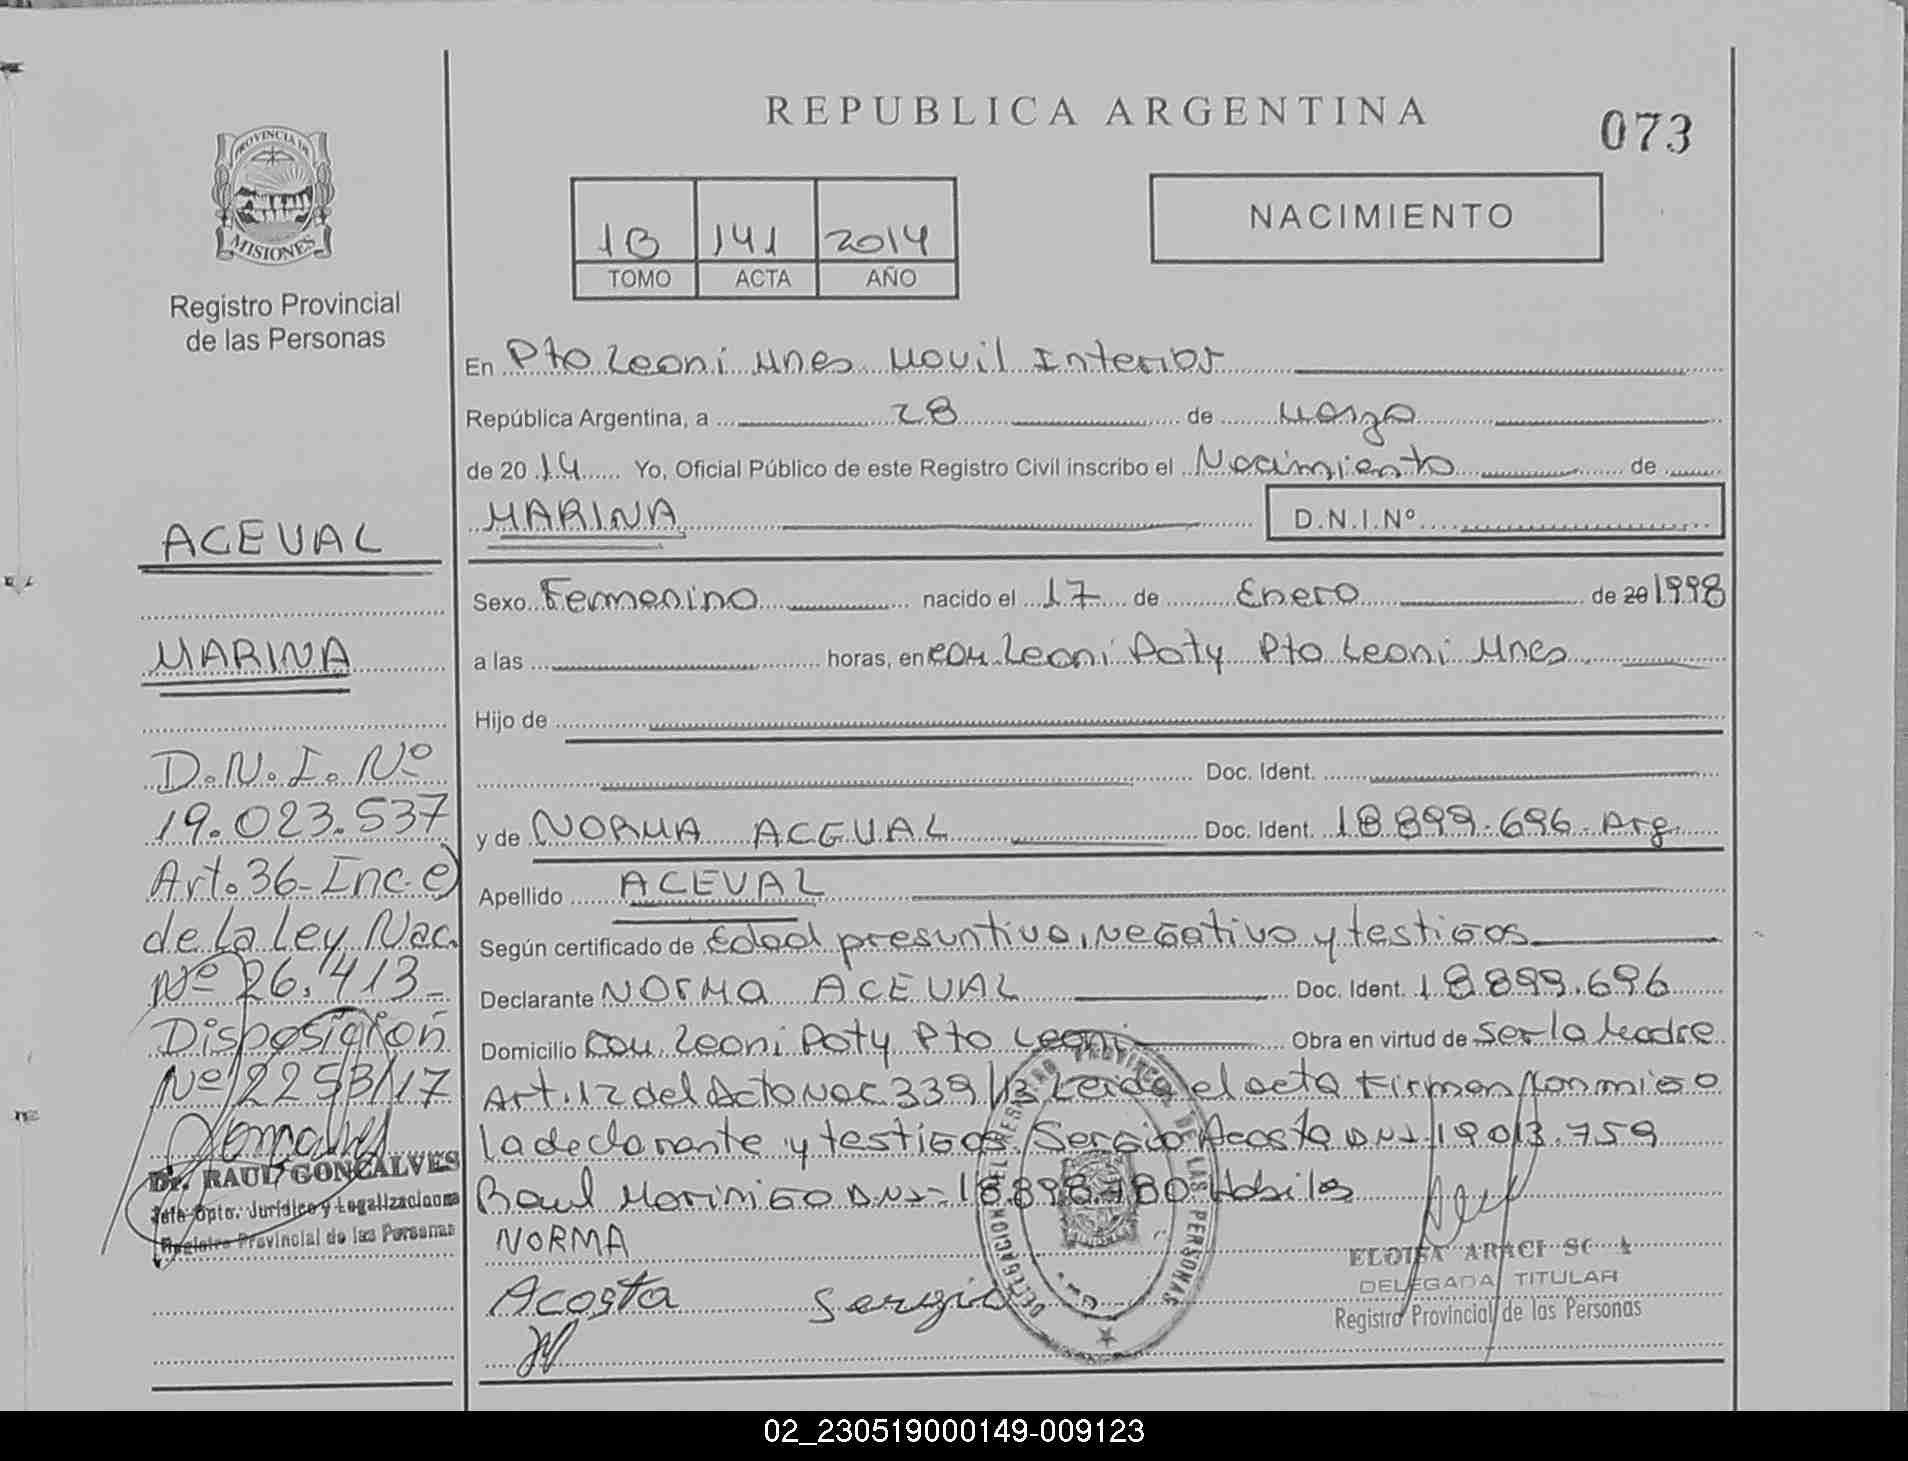 REPUBLICA ARGENTINA
073
PROVINCIA DE
MISIONES
Registro Provincial
de las Personas
1B 141 2014
TOMO ACTA AÑO
NACIMIENTO
En Pto Leoni Mnes Movil Interior
República Argentina, a 28 de Marzo
de 20 14 Yo, Oficial Público de este Registro Civil inscribo el Nacimiento de
MARINA D.N.I.Nº
Sexo Femenino nacido el 17 de Enero de 20 1998
a las horas, en Com Leoni Poty Pto Leoni Mnes
Hijo de
Doc. Ident.
y de NORMA ACEVAL Doc. Ident. 18 899.696. Arg.
Apellido ACEVAL
Según certificado de Edad presuntiva, Negativo y testigos
Declarante NORMA ACEVAL Doc. Ident. 18 899.696
Domicilio Com Leoni Poty Pto Leoni Obra en virtud de Ser la Madre
Art. 12 del Acto Nac 339/13 Leida el acta Firman conmigo
la declarante y testigos Sergio Acosta DNI 19013.759
Raul Morinigo DNI- 18.898.780 Habiles
NORMA
Acosta Sergio
DELEGACION DEL REGISTRO PROVINCIAL DE LAS PERSONAS
ELOISA ARACI
DELEGADA TITULAR
Registro Provincial de las Personas
ACEVAL
MARINA
D.N.I. Nº
19.023.537
Art. 36- Inc. e)
de la Ley Nac.
Nº 26.413-
Disposición
Nº 2253/17
Dr. RAUL GONCALVES
Jefe Dpto. Jurídico y Legalizaciones
Registro Provincial de las Personas
02_230519000149-009123